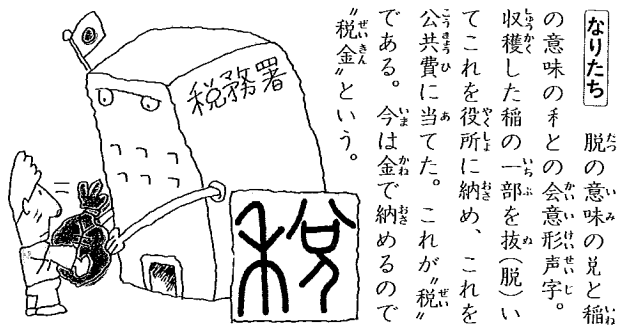 なりたち 脱の意味の兌と稲
の意味の禾との会意形声字。
収穫した稲の一部を抜(脱)い
てこれを役所に納め、これを
公共費に当てた。これが〝税〟
である。今は金で納めるので
〝税金〟という。
税務署
税